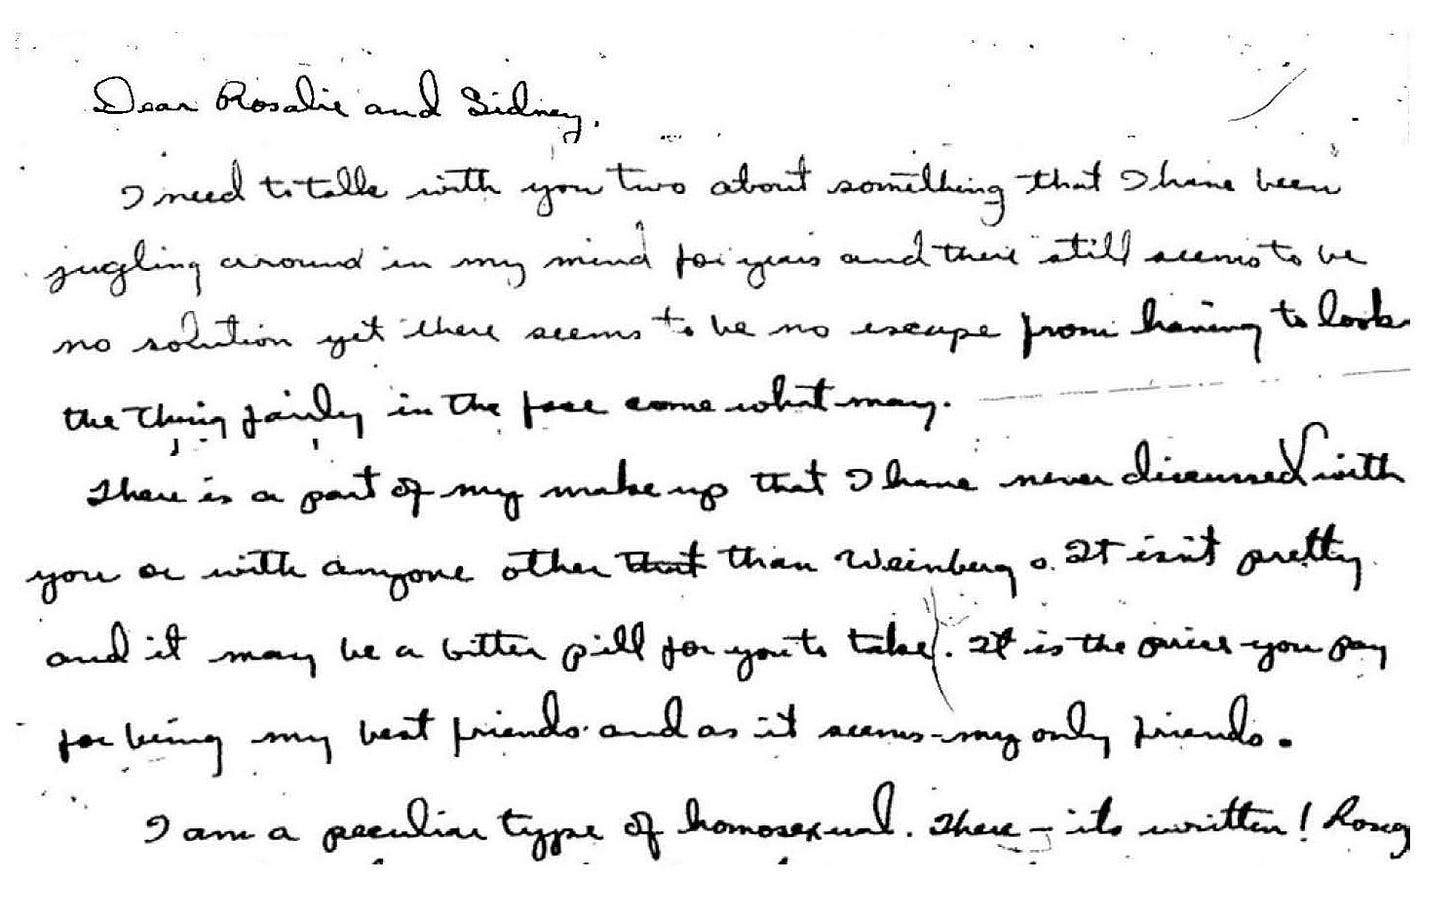 Dear Rosalie and Sidney,
I need to talk with you two about something that I have been
jugling around in my mind for years and there still seems to be
no solution yet there seems to be no escape from having to look
the thing fairly in the face come what may.
There is a part of my make up that I have never discussed with
you or with anyone other that than Weinberg. It isn't pretty
and it may be a bitter pill for you to take. It is the price you pay
for being my best friends and as it seems - my only friends.
I am a peculiar type of homosexual. There - its written!